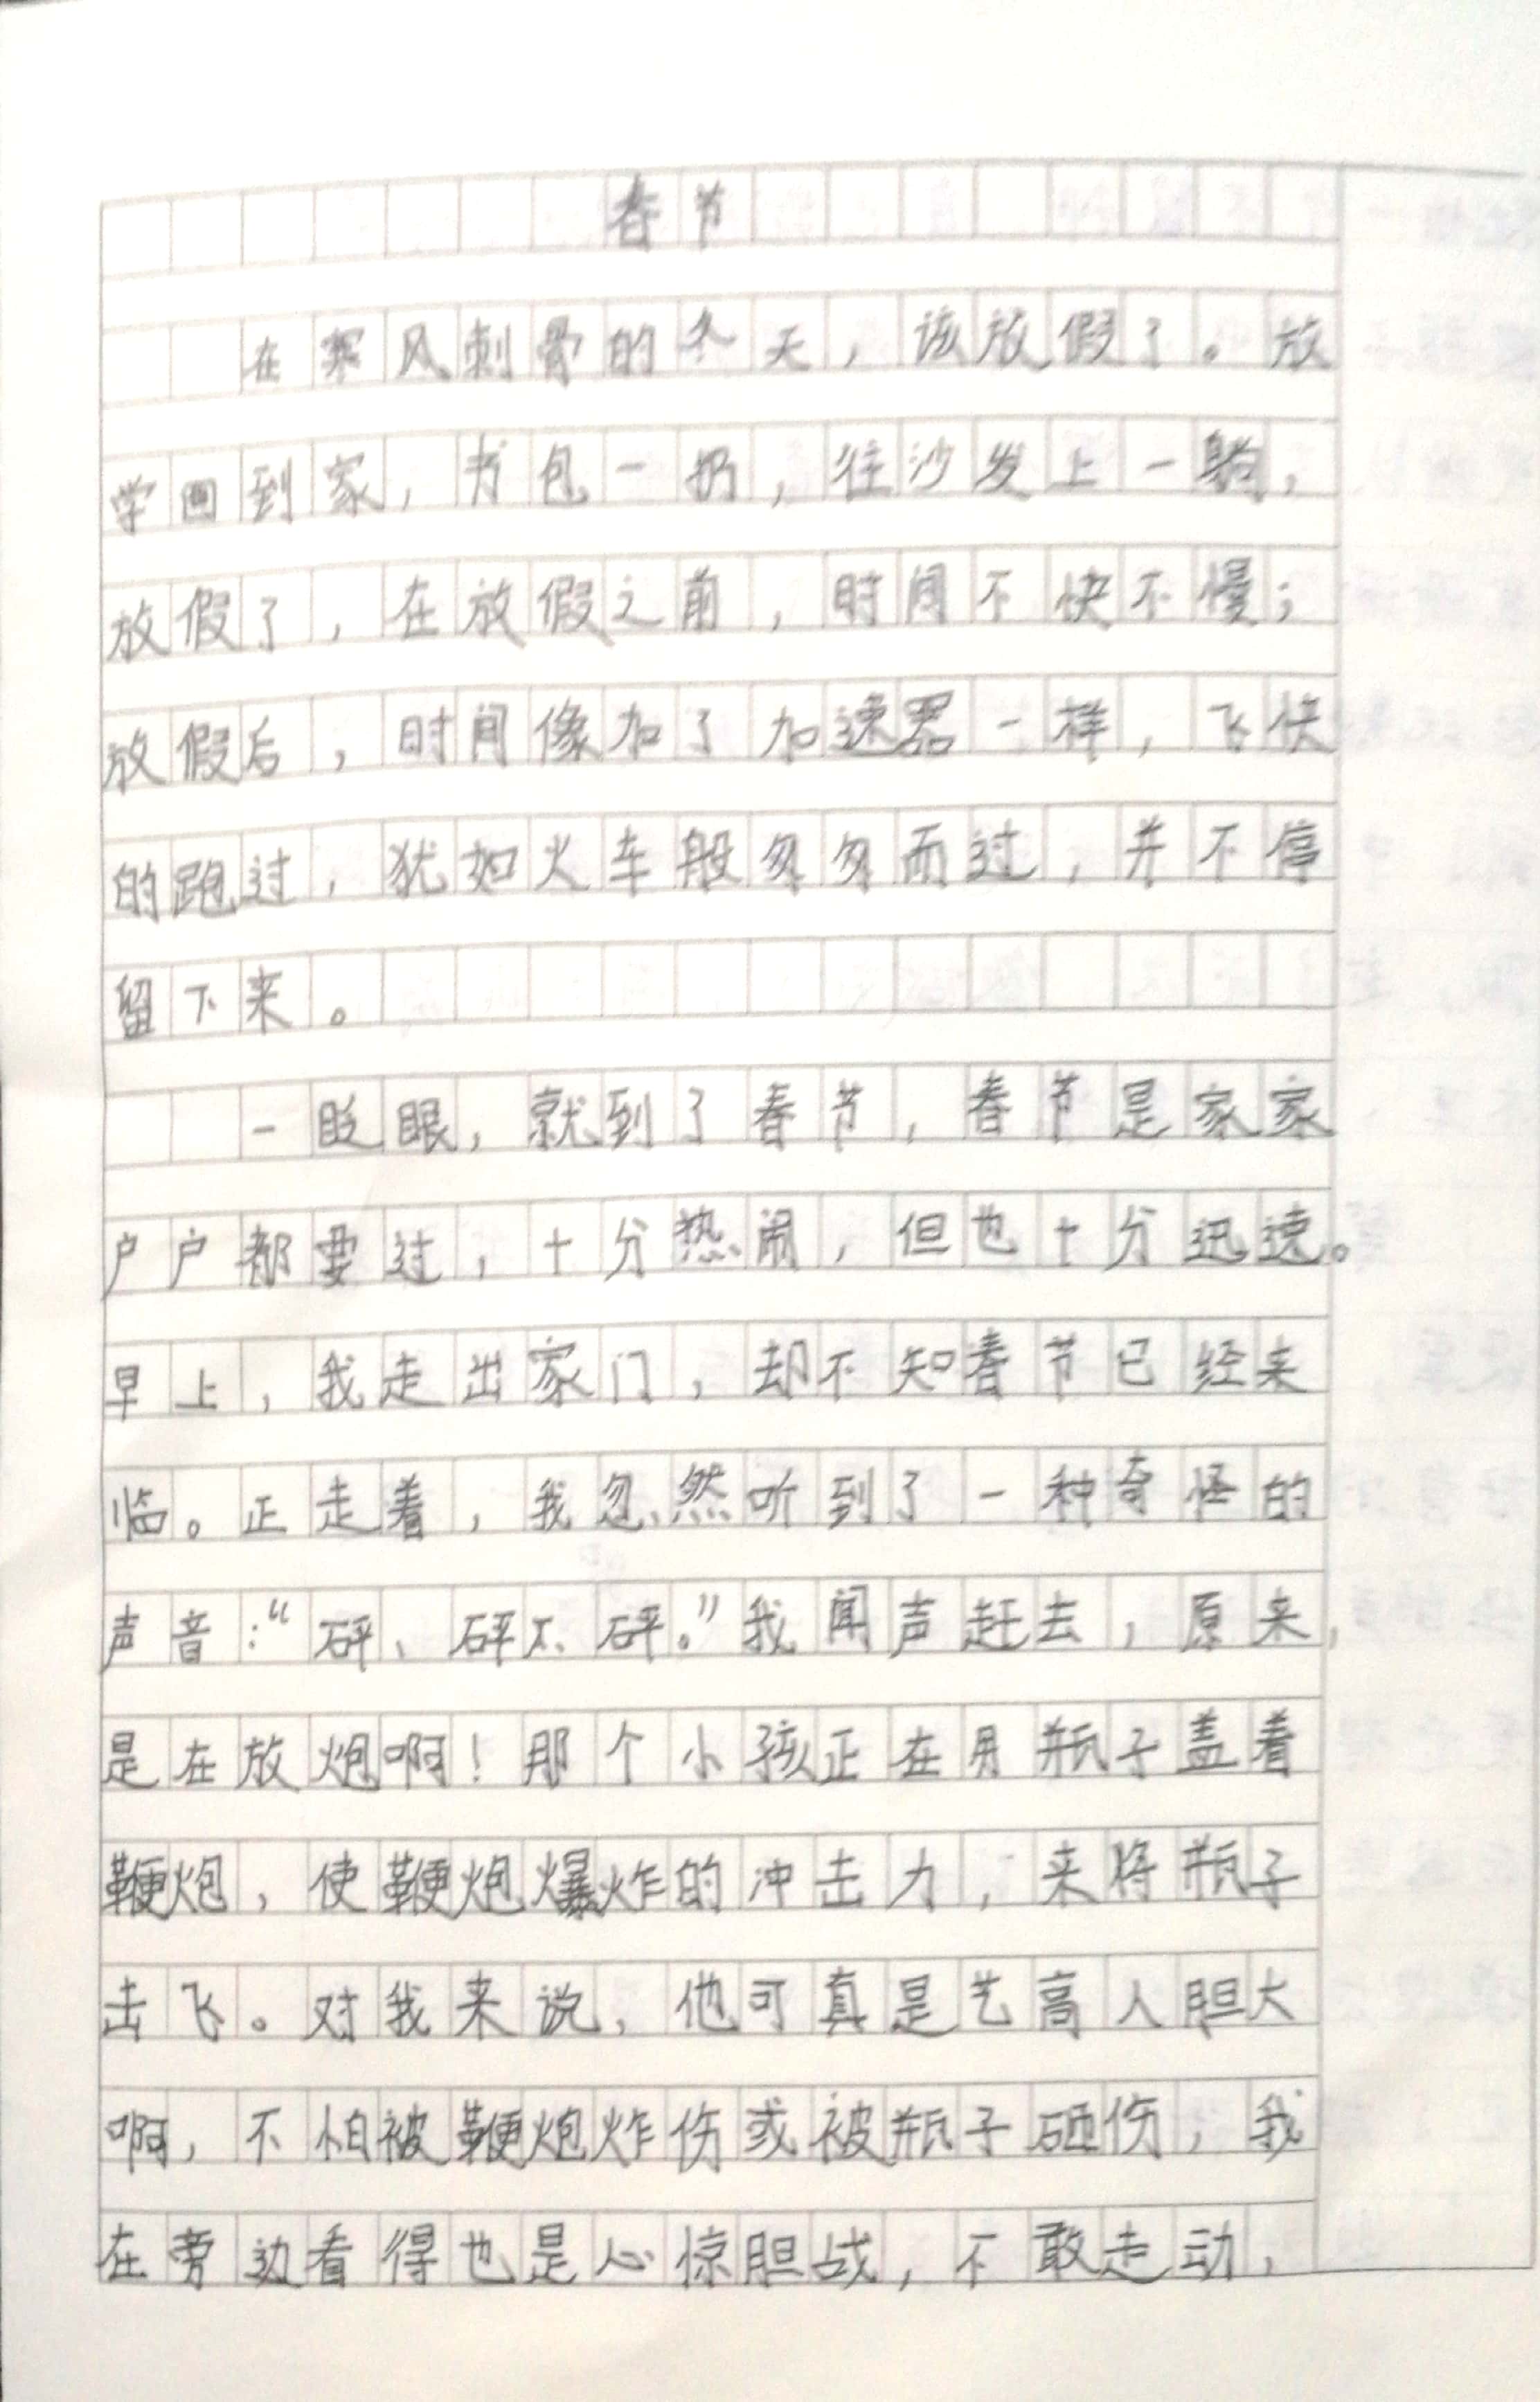 春节
在寒风刺骨的冬天，该放假了。放
学回到家，书包一扔，往沙发上一躺，
放假了，在放假之前，时间不快不慢；
放假后，时间像加了加速器一样，飞快
的跑过，犹如火车般匆匆而过，并不停
留下来。
一眨眼，就到了春节，春节是家家
户户都要过，十分热闹，但也十分迅速。
早上，我走出家门，却不知春节已经来
临。正走着，我忽然听到了一种奇怪的
声音：“砰、砰、砰。”我闻声赶去，原来，
是在放炮啊！那个小孩正在用瓶子盖着
鞭炮，使鞭炮爆炸的冲击力，来将瓶子
击飞。对我来说，他可真是艺高人胆大
啊，不怕被鞭炮炸伤或被瓶子砸伤，我
在旁边看得也是心惊胆战，不敢走动，